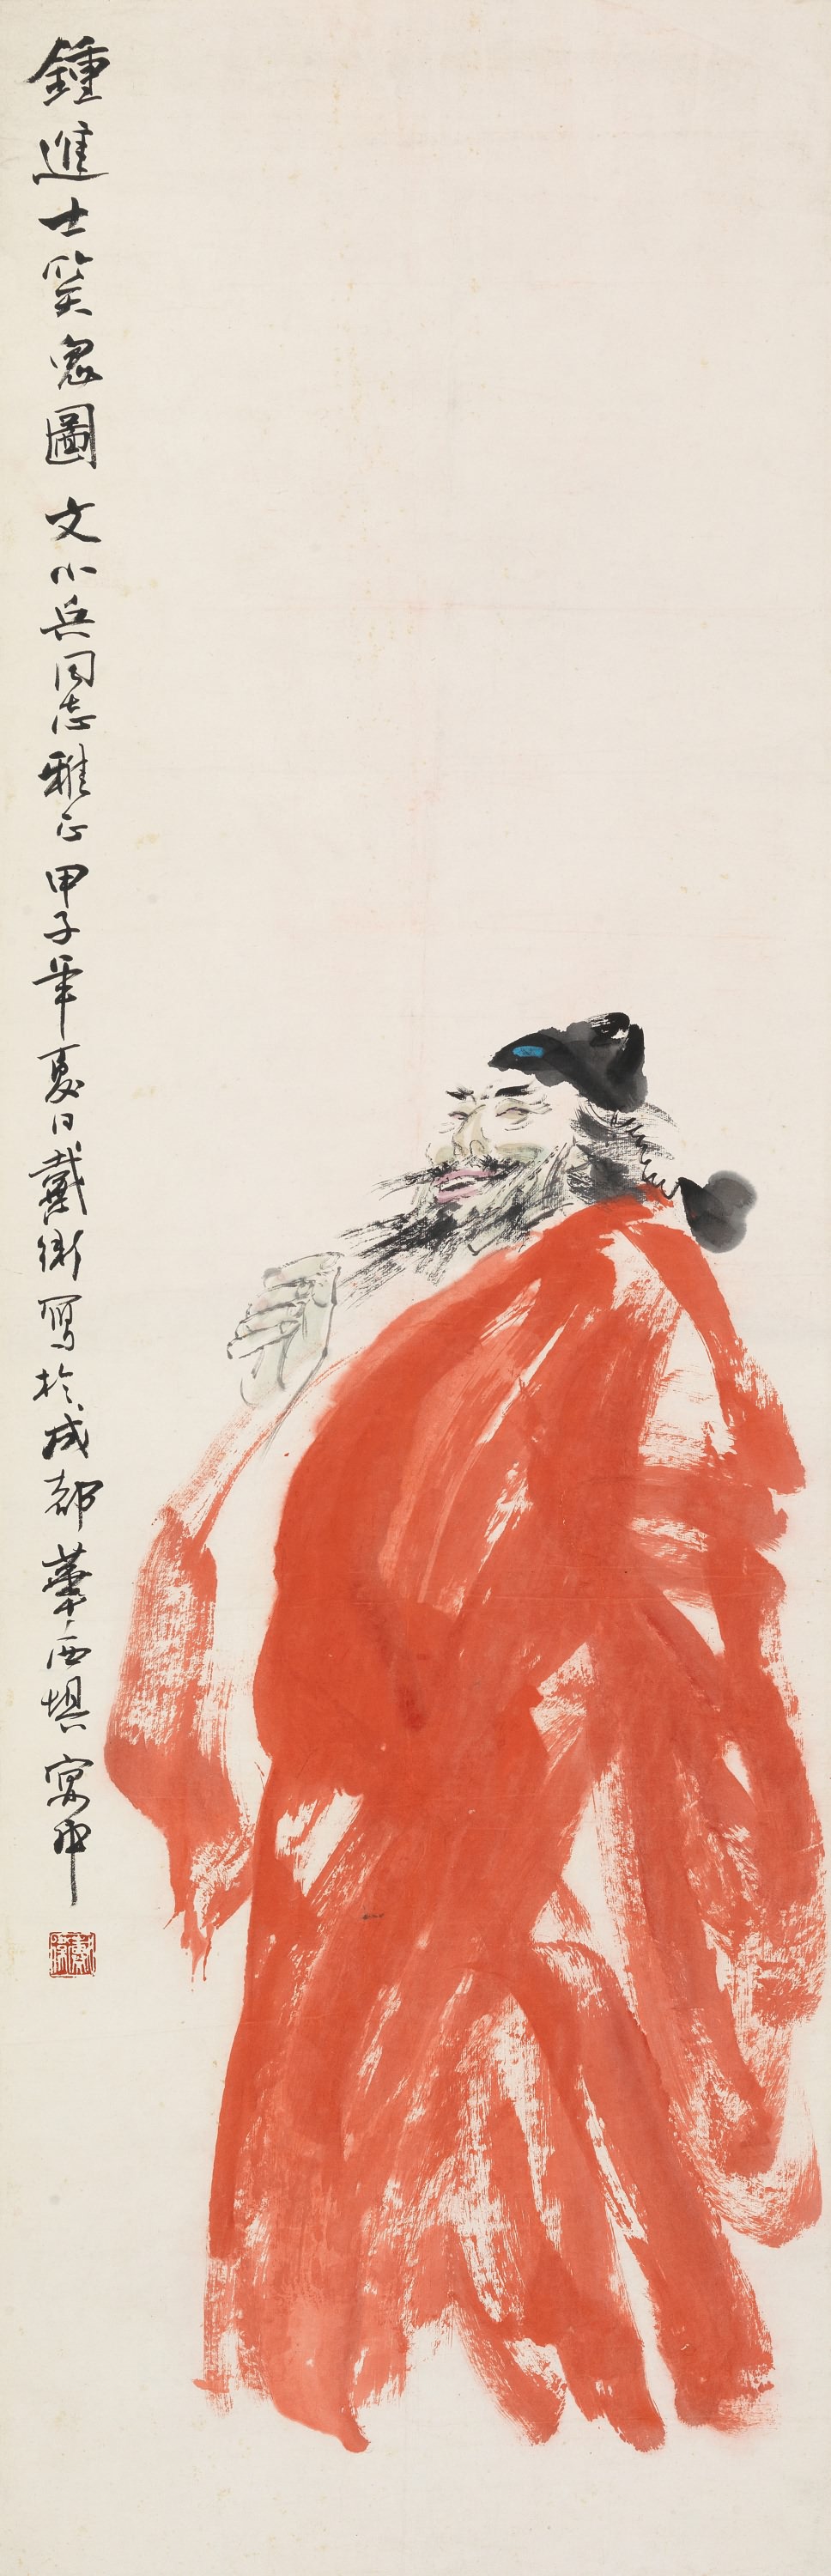 鍾進士笑鬼圖文小兵同志雅正甲子年夏日戴衛寫於成都華西壩寓中
戴衛